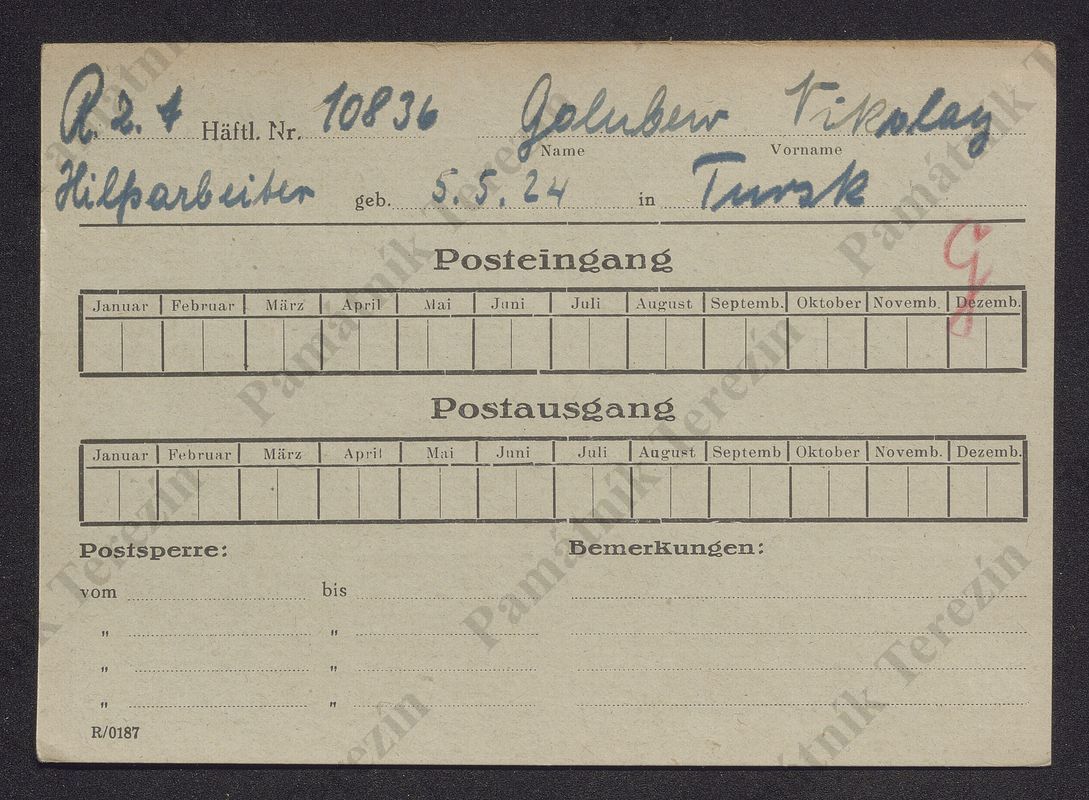 R. 2. 1 Häftl. Nr. 10836 Golubew Nikolay
Name Vorname
Hilfsarbeiter geb. 5.5.24 in Tursk
G
Posteingang
Januar Februar März April Mai Juni Juli August Septemb. Oktober Novemb. Dezemb.
Postausgang
Januar Februar März April Mai Juni Juli August Septemb Oktober Novemb. Dezemb.
Postsperre: Bemerkungen:
vom bis
" "
" "
" "
R/0187
Památník Terezín